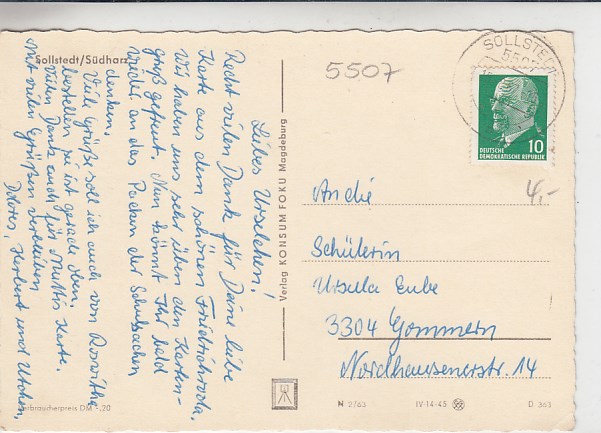 Sollstedt/Südharz
Liebes Urselchen!
Recht vielen Dank für Deine liebe
Karte aus dem schönen Friedrichroda.
Wir haben uns sehr über den Karten-
gruß gefreut. Nun könnt Ihr bald
wieder an das Packen der Schulsachen
denken.
Viele Grüße soll ich auch von Roswitha
bestellen sie ist gerade oben.
Vielen Dank auch für Muttis Karte.
Mit vielen Grüßen verbleiben
Dolores, Herbert und
Verbraucherpreis DM -,20
Verlag KONSUM FOKU Magdeburg
5507
SOLLSTEDT
550
10
DEUTSCHE
DEMOKRATISCHE REPUBLIK
4,-
An die
Schülerin
Ursula Eube
3304 Gommern
Nordhausenerstr. 14
N 2/63
IV-14-45
D 363